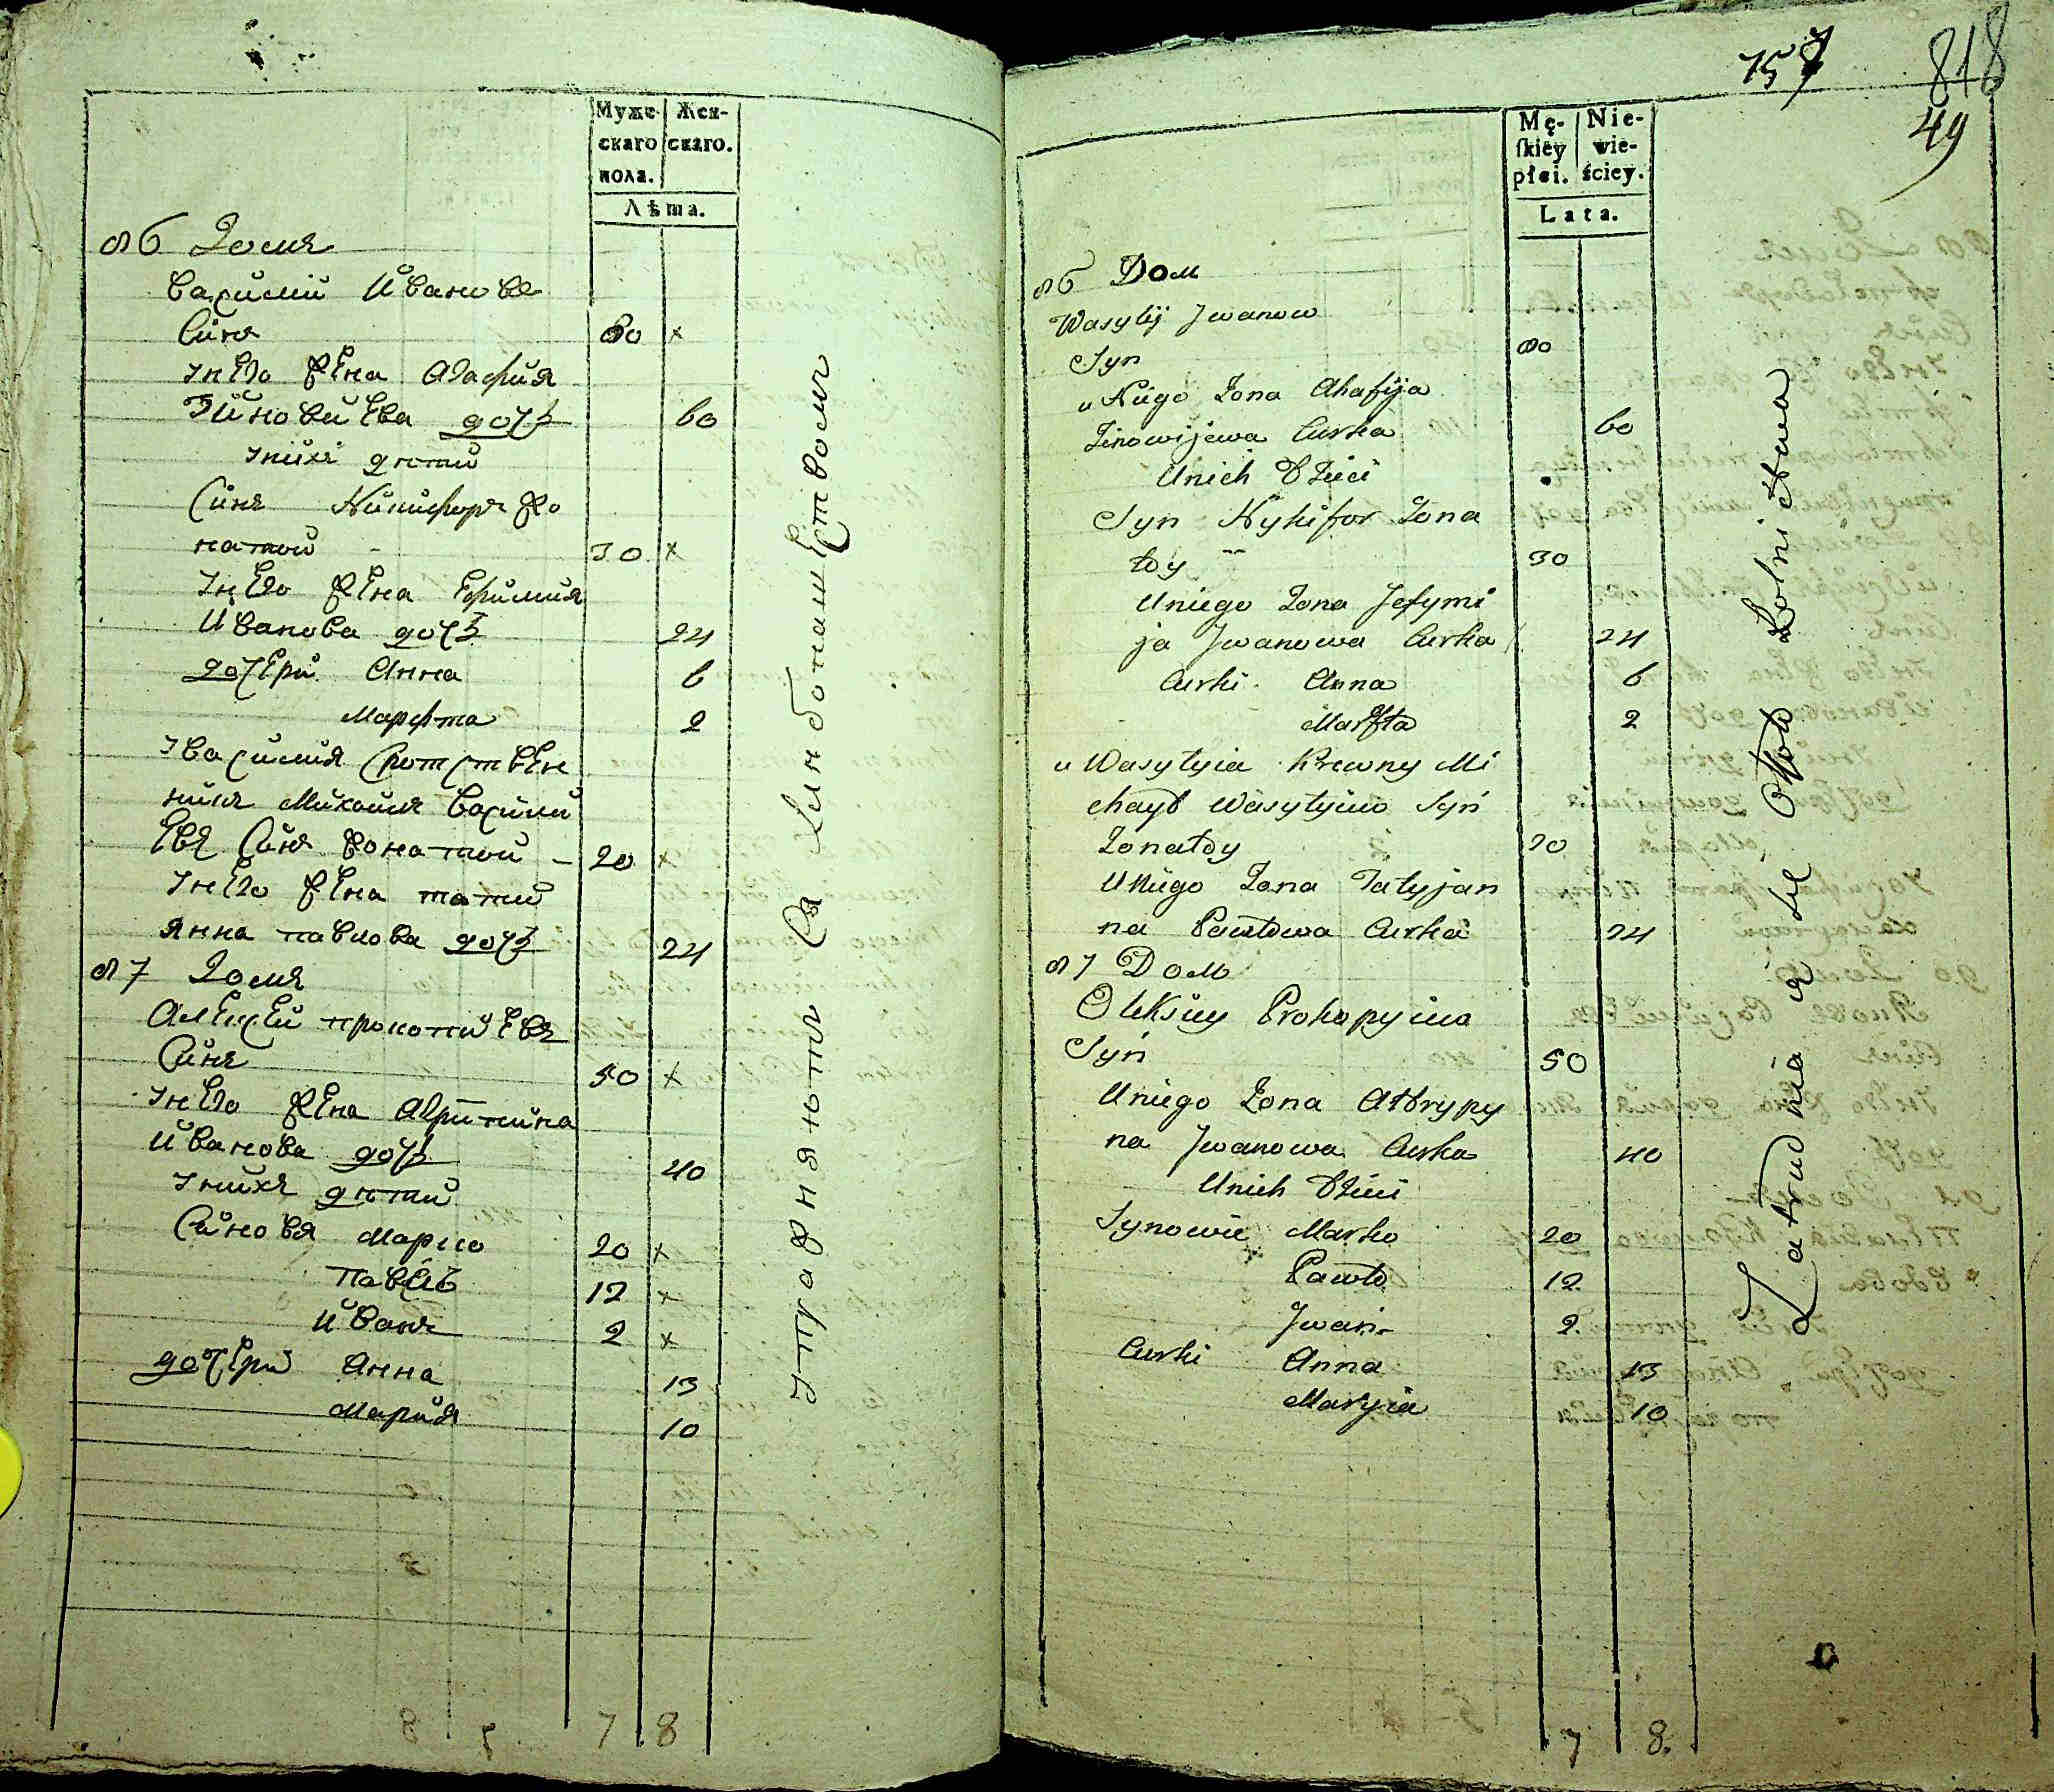 Муже-
скаго
пола.
Жен-
скаго.
Лѣта.
86 Домъ
Василий Ивановъ
Синъ 80 ×
Унего Жена Агафия
Зиновиева дочъ 60
Унихъ дѣти
Синъ Никифоръ Жо
натой - 30 ×
Унего Жена Ефимия
Иванова дочъ 24
дочери Анна 6
Марфта 2
Увасилия Сротствен
никъ Михаилъ Васили
евъ Синъ Жонатой - 20 ×
Унего Жена тати
янна павлова дочъ 24
87 Домъ
Алексей прокопиевъ
Синъ 50 ×
Унего Жена Агрипина
Иванова дочъ 40
Унихъ дѣти
Синовя Марко 20 ×
павелъ 12 ×
Иванъ 2 ×
дочери Анна 13
Мария 10
7 8
упражняютъ Ся Хлибопашеством
157
818
49
Mę-
skiey
płci.
Nie-
wie-
ściey.
Lata.
86 Дом
Wasylij Jwanow
Syn 80
u Niego Żona Ahafija
Zinowijewa Curka 60
Unich Dzieci
Syn Nykifor Żona
ty 30
Uniego Żona Jefymi
ja Jwanowa Curka 24
Curki Anna 6
Marfta 2
u Wasylyia Krewny Mi
chayl Wasylyiew Syn
Żonaty 20
Uniego Żona Tatyjan
na Pawłowa Curka 24
87 Dom
Oleksiey Prokopyiew
Syn 50
Uniego Żona Ahrypy
na Jwanowa Curka 40
Unich Dzieci
Synowie Marko 20
Pawło 12
Jwan 2
Curki Anna 13
Maryia 10
7 8.
Zatrudnia ią się Około Rolnictwa